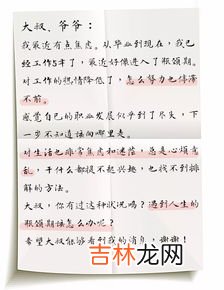 大叔、爷爷：
我最近有点焦虑。从毕业到现在，我已
经工作5年了，最近好像进入了瓶颈期。
对工作的热情降低了，怎么努力也停滞
不前。
感觉自己的职业发展似乎到了尽头，下
一步不知道该向哪里走。
对生活也非常焦虑和迷茫，总是心烦意
乱，干什么都提不起兴趣，也找不到排
解的方法。
大叔，你有过这种状况吗？遇到人生的
瓶颈期该怎么办呢？
希望大叔能够看到我的消息，谢谢！
吉林龙网